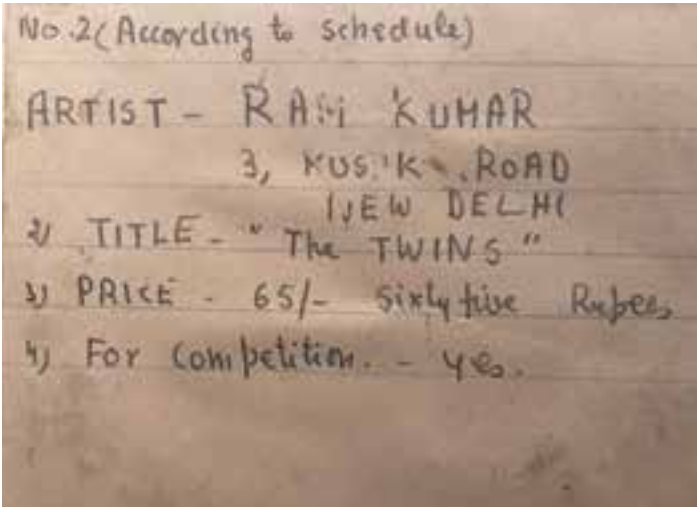 No.2 (According to Schedule)
ARTIST - RAM KUMAR
3, ROAD
NEW DELHI
2) TITLE - " The TWINS "
3) PRICE - 65/- Sixty five Rupees
4) For Competition. - Yes.